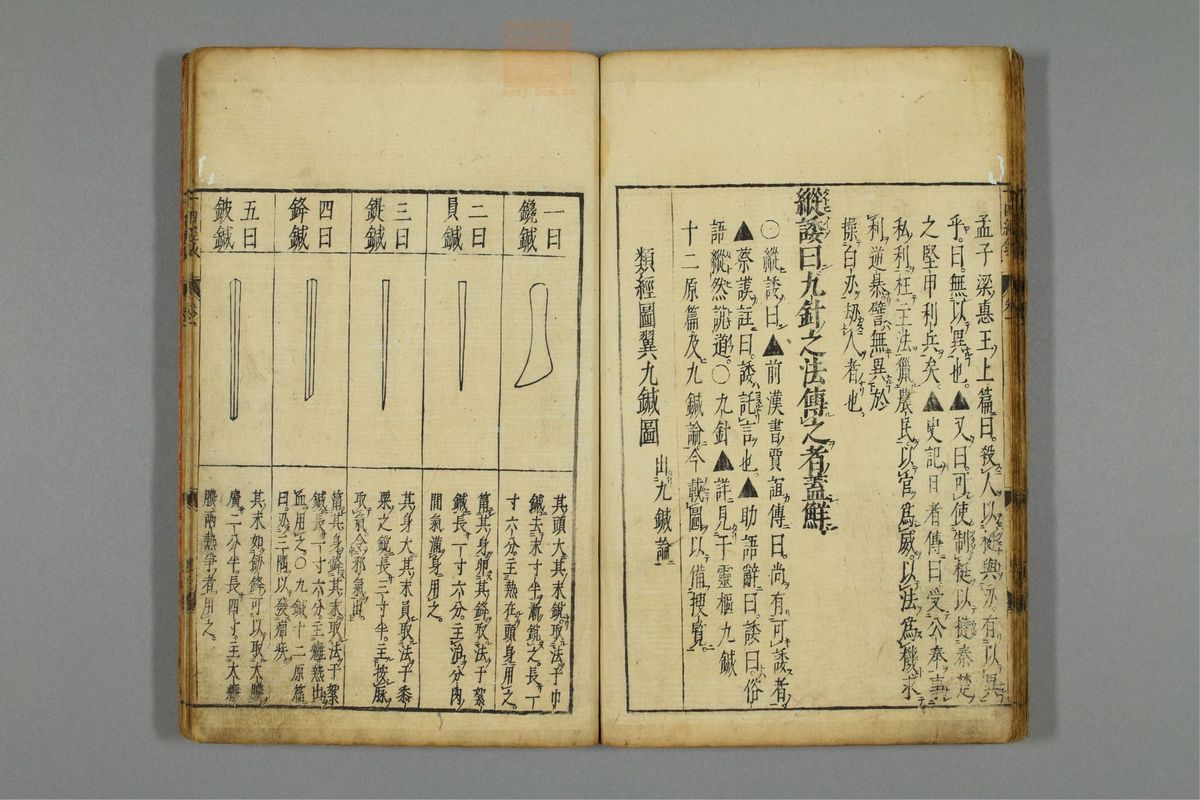 孟子梁惠王上篇曰。殺人以梃與刃有以異
乎。曰。無以異也。▲又曰。可使制梃以撻秦楚
之堅甲利兵矣。▲史記日者傳曰受公奉事
私利枉王法獵農民以官爲威以法爲機求
利逆暴譬無異於
操白刃刼人者也。
縱諉曰九針之法傳之者蓋鮮
○縱諉曰▲前漢書賈誼傳曰。尚有可諉者
▲蔡謨註曰。諉託言也。▲助語辭曰。諉曰。俗
語縱然說道。○九針▲詳見于靈樞九鍼
十二原篇及九鍼論今載圖以備搜覽
類經圖翼九鍼圖 出九鍼論
一曰
鑱鍼
其頭大其末銳取法于巾
鍼去末寸半漸銳之長一
寸六分主熱在頭身用之。
二曰
員鍼
筩其身卵其鋒取法于絮
鍼長一寸六分主治分肉
間氣滿身用之。
三曰
鍉鍼
其身大其末員取法于黍
粟之銳長三寸半。主按脉
取氣令邪氣出
四曰
鋒鍼
筩其身鋒其末取法于絮
鍼長一寸六分主癰熱出
血用之○九鍼十二原篇
曰刃三隅以發痼疾
五曰
鈹鍼
其末如劔鋒可以取大膿
廣二分半長四寸主大癰
膿兩熱爭者用之。